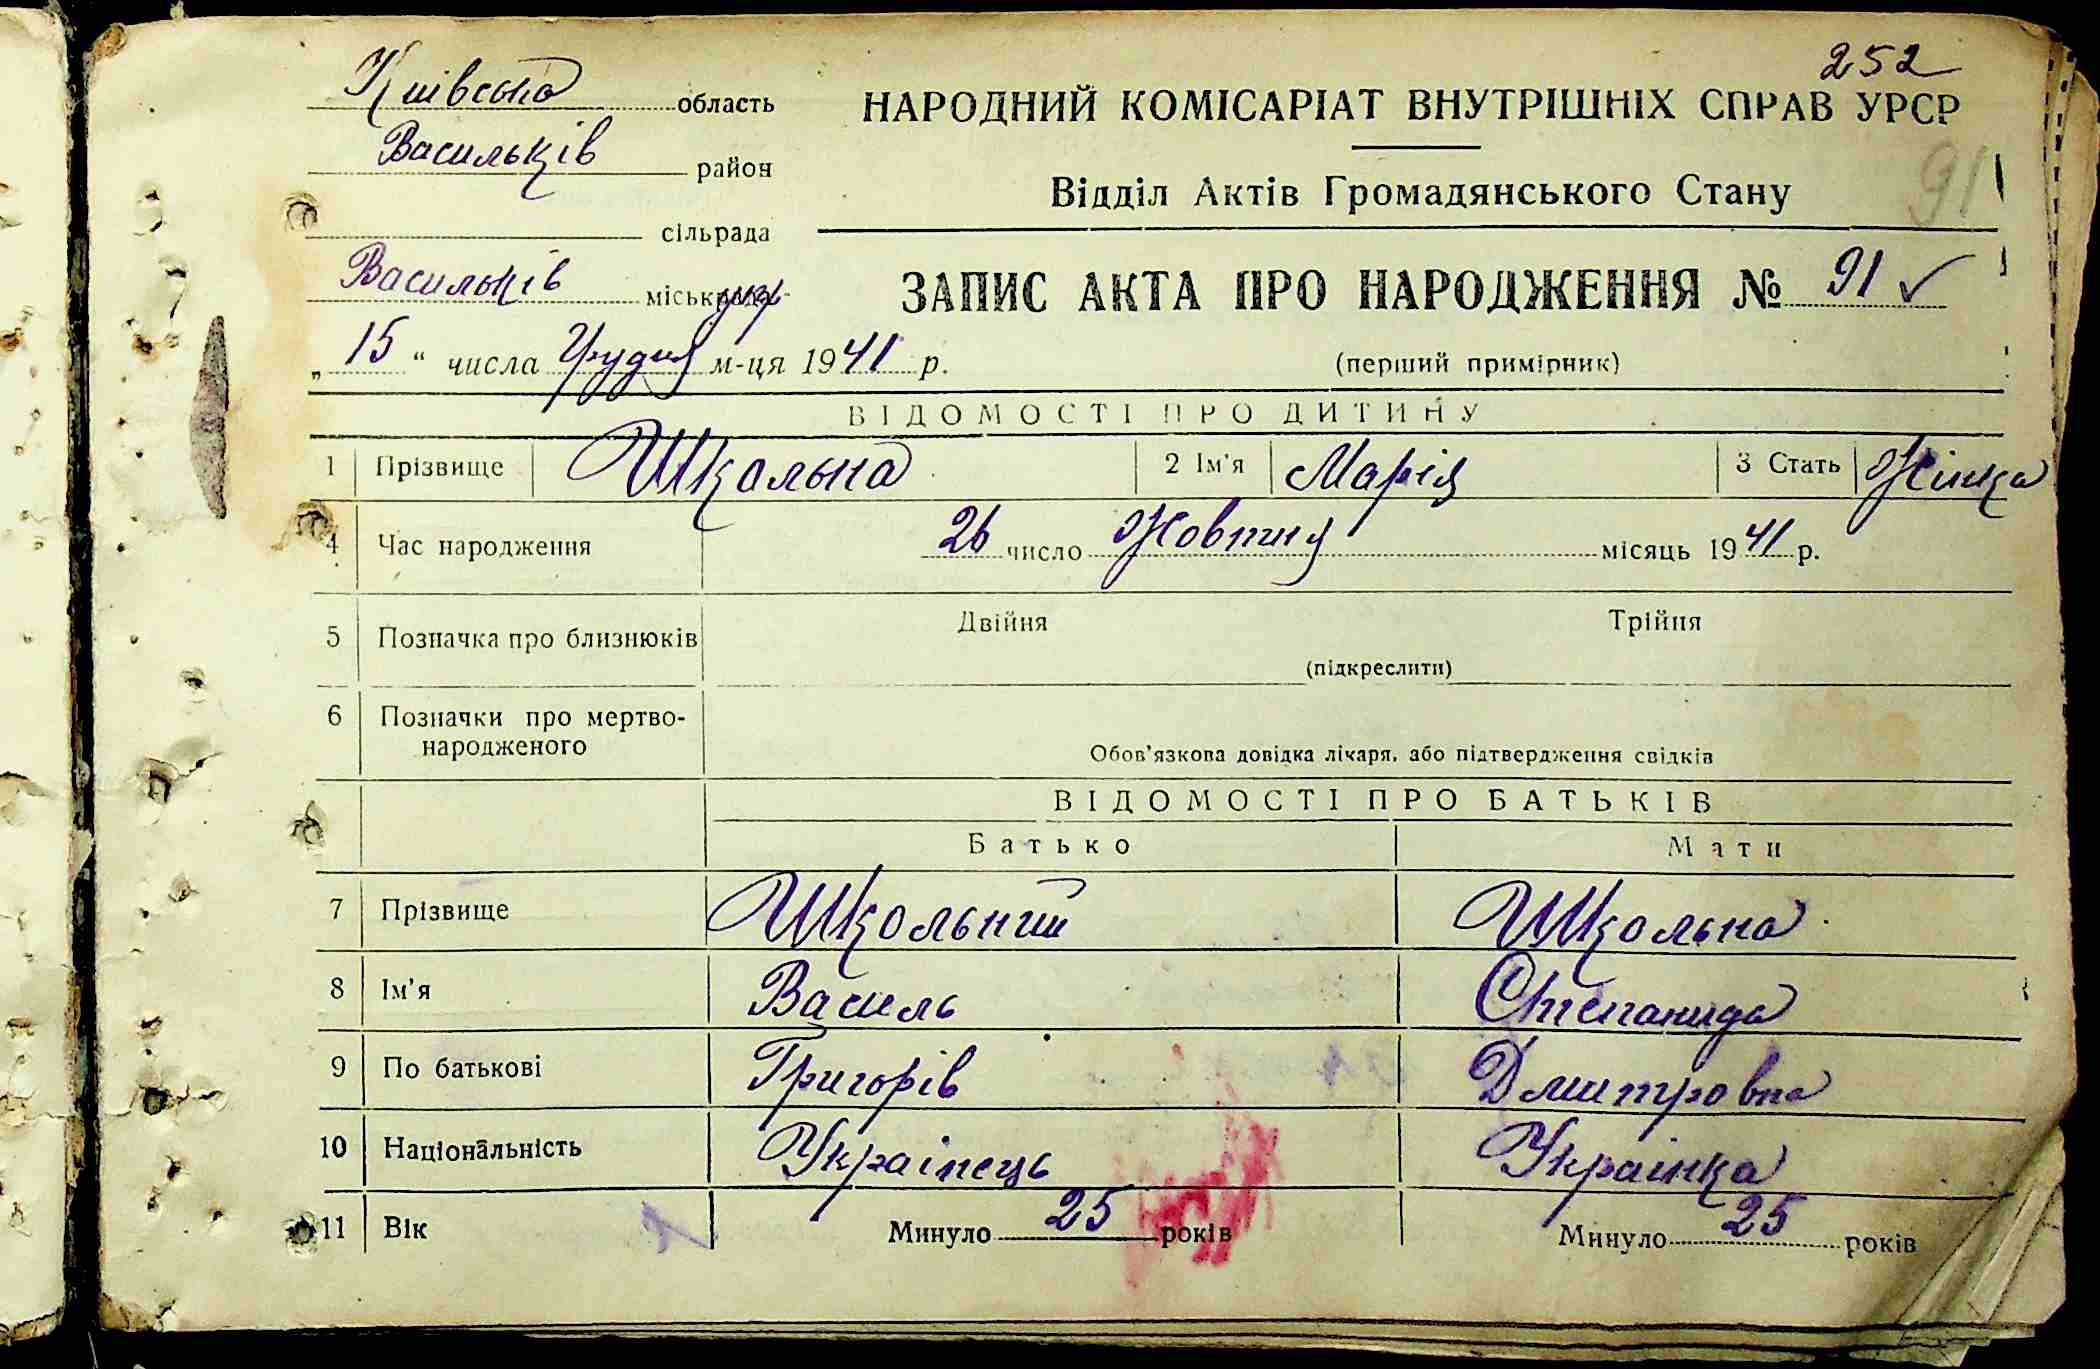 252
Київська область
НАРОДНИЙ КОМІСАРІАТ ВНУТРІШНІХ СПРАВ УРСР
Васильків район
91
Відділ Актів Громадянського Стану
сільрада
Васильків міськрада
ЗАПИС АКТА ПРО НАРОДЖЕННЯ № 91 ✓
„15“ числа Грудня м-ця 1941 р.
(перший примірник)
ВІДОМОСТІ ПРО ДИТИНУ
1 Прізвище Школьна 2 Ім'я Марія 3 Стать Жінка
4 Час народження 26 число Жовтня місяць 1941 р.
5 Позначка про близнюків Двійня Трійня
(підкреслити)
6 Позначки про мертво-
народженого
Обов'язкова довідка лікаря, або підтвердження свідків
ВІДОМОСТІ ПРО БАТЬКІВ
Батько Мати
7 Прізвище Школьний Школьна
8 Ім'я Василь Степанида
9 По батькові Григорів Дмитровна
10 Національність Украінець Украінка
11 Вік Минуло 25 років Минуло 25 років